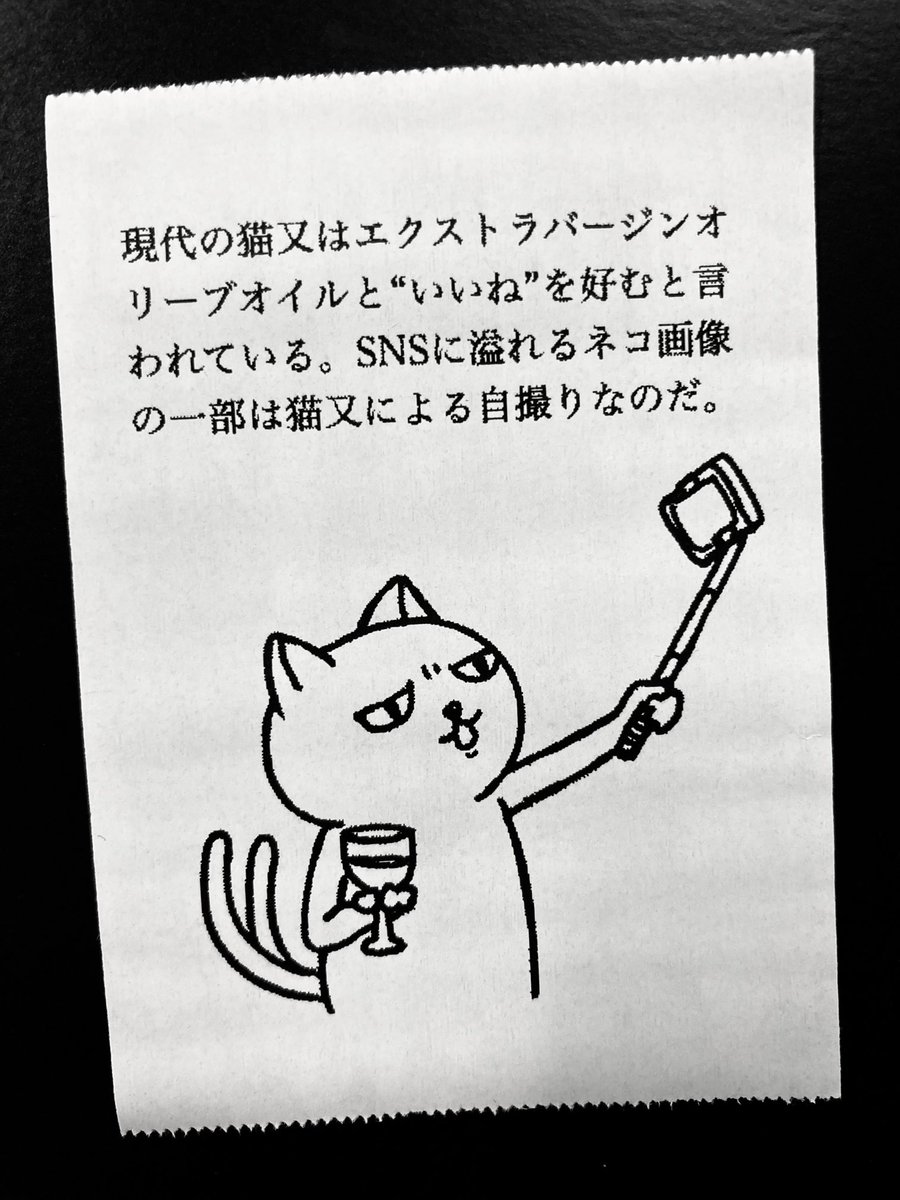 現代の猫又はエクストラバージンオ
リーブオイルと“いいね”を好むと言
われている。SNSに溢れるネコ画像
の一部は猫又による自撮りなのだ。